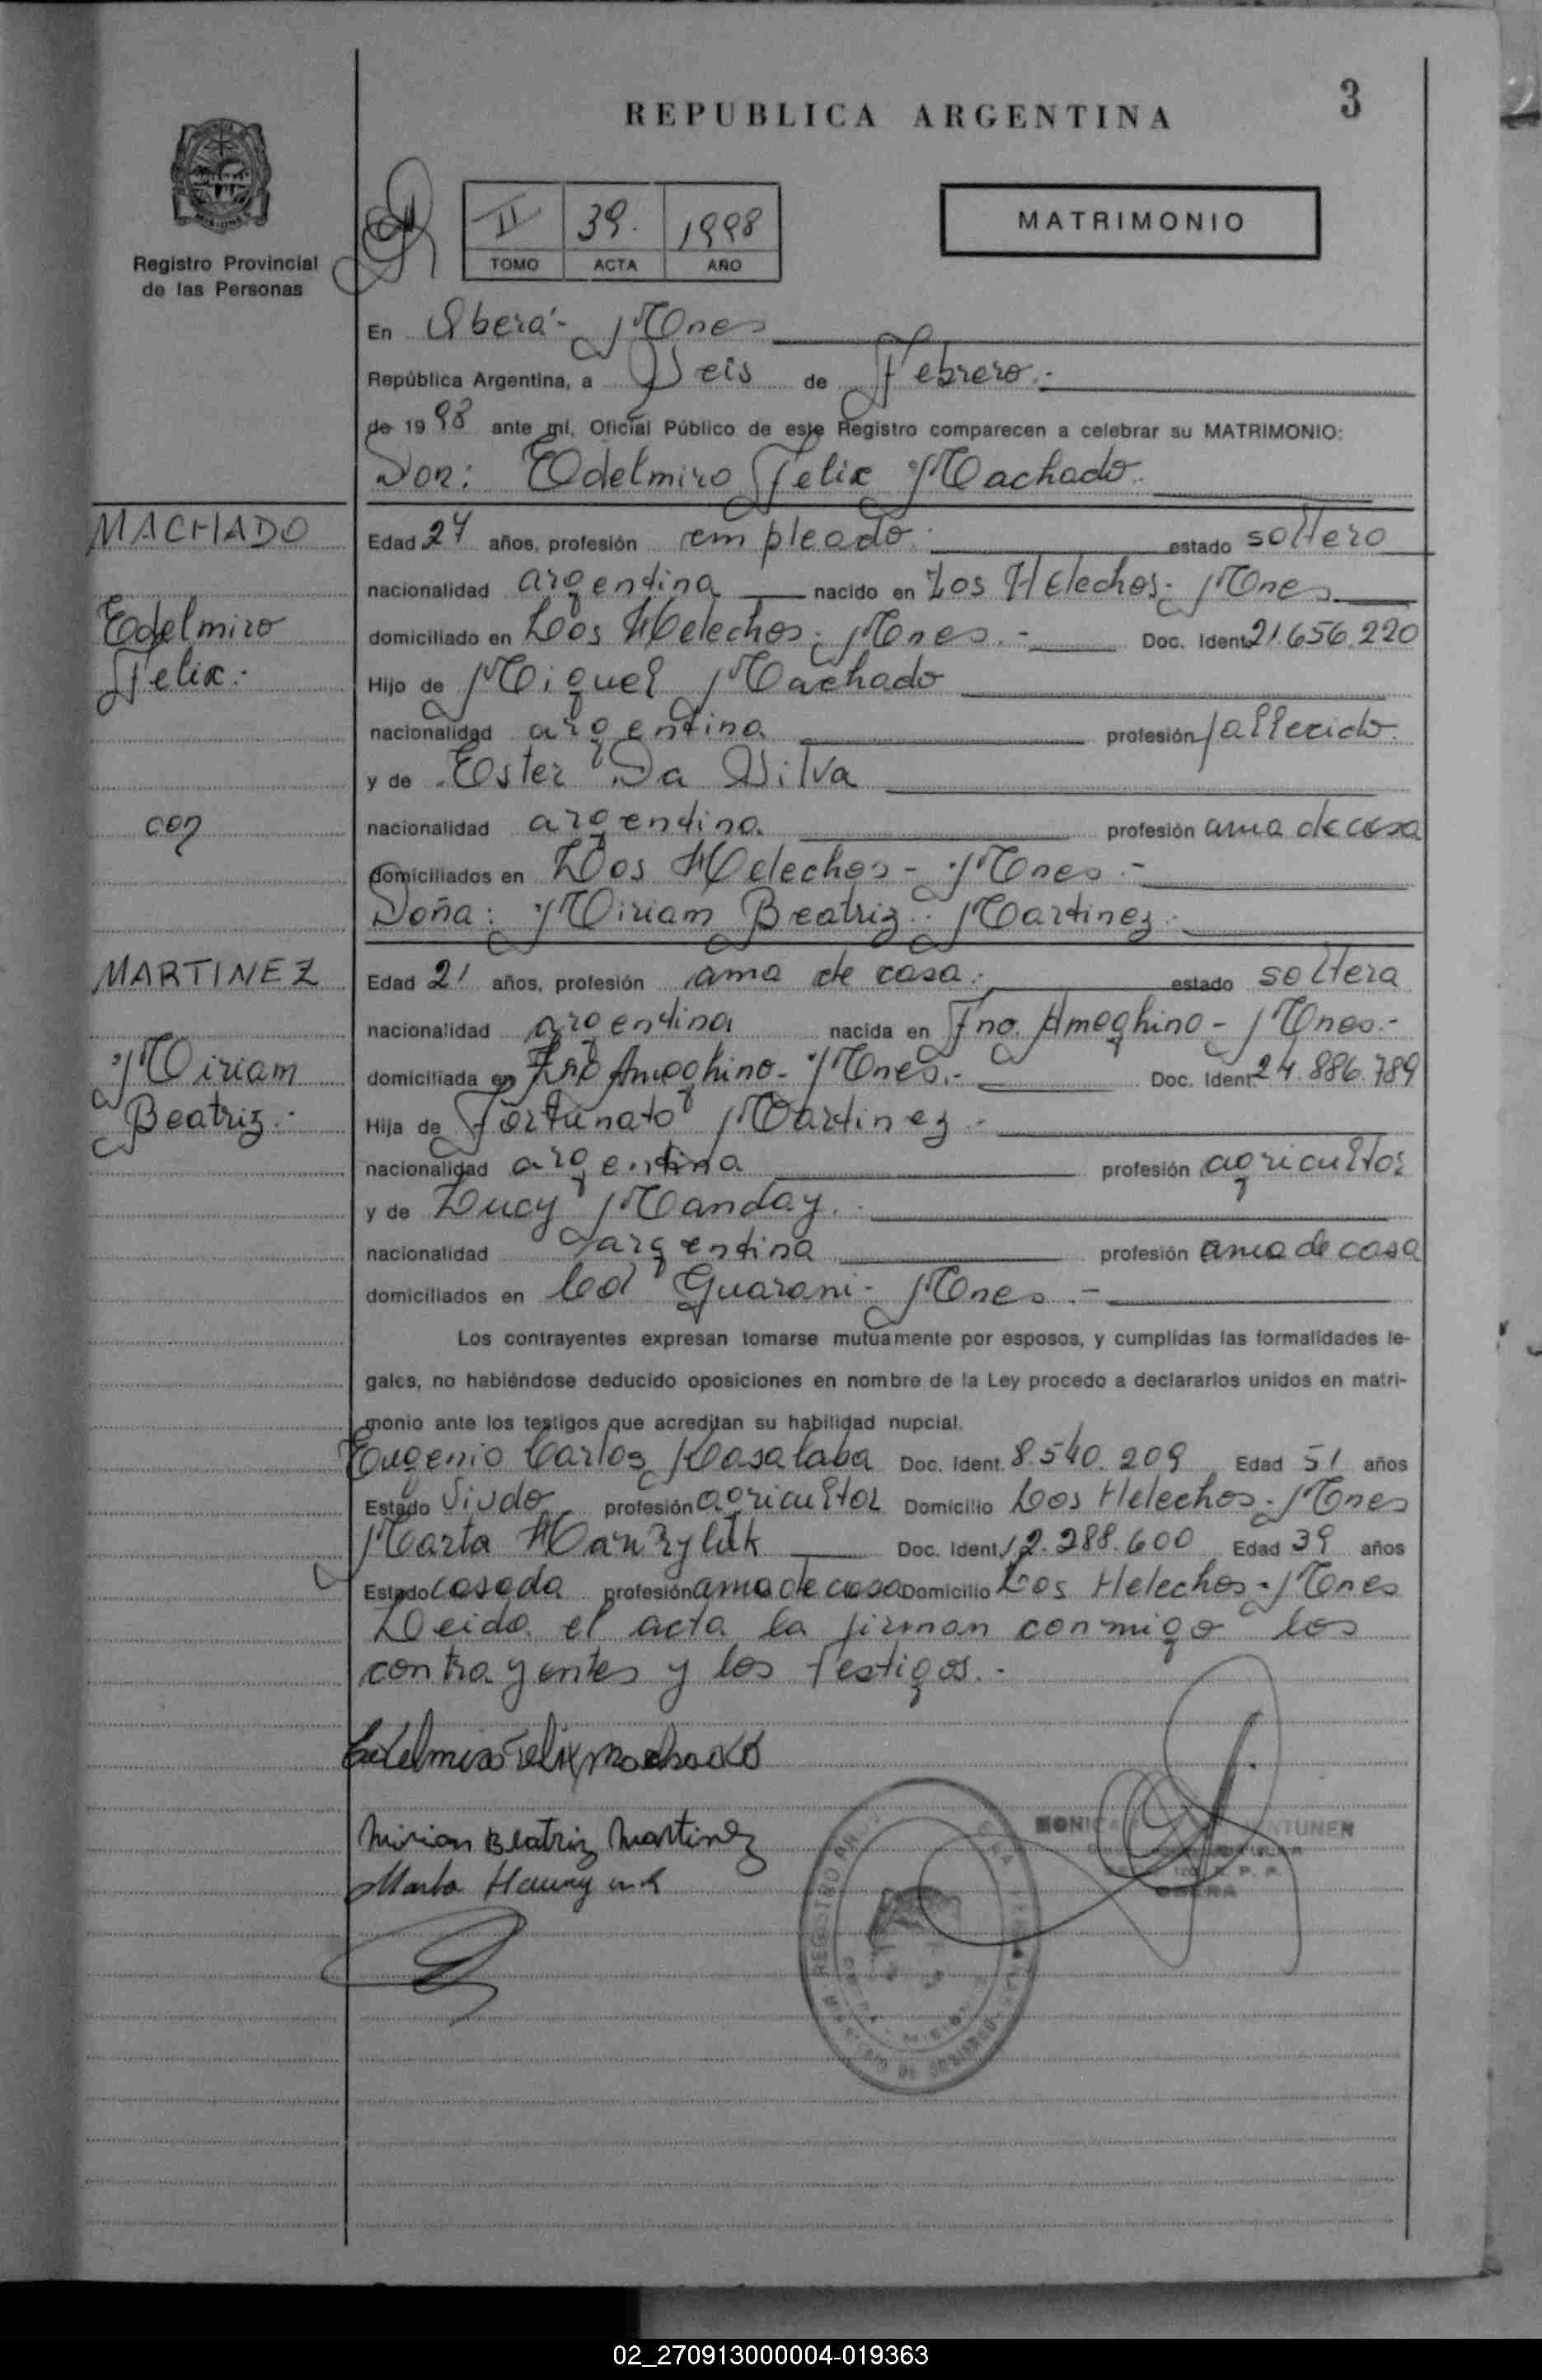 REPUBLICA ARGENTINA
3
Registro Provincial
de las Personas
II 39. 1998
TOMO ACTA AÑO
MATRIMONIO
En Oberá - Mnes
República Argentina, a Seis de Febrero.-
de 1998 ante mi, Oficial Público de este Registro comparecen a celebrar su MATRIMONIO:
Don: Edelmiro Felix Machado.
MACHADO
Edelmiro
Felix.-
con
MARTINEZ
Miriam
Beatriz.-
Edad 27 años, profesión empleado. estado soltero
nacionalidad argentina nacido en Los Helechos - Mnes
domiciliado en Los Helechos - Mnes.- Doc. Ident. 21.656.220
Hijo de Miguel Machado
nacionalidad argentina profesión fallecido.
y de Ester Da Silva
nacionalidad argentina. profesión ama de casa
domiciliados en Los Helechos - Mnes.-
Doña: Miriam Beatriz Martinez.
Edad 21 años, profesión ama de casa.- estado soltera
nacionalidad argentina nacida en Fno. Ameghino - Mnes.-
domiciliada en Fno Ameghino - Mnes.- Doc. Ident. 24.886.789
Hija de Fortunato Martinez -
nacionalidad argentina profesión agricultor
y de Lucy Manday.
nacionalidad argentina profesión ama de casa
domiciliados en Col Guarani - Mnes.-
Los contrayentes expresan tomarse mutuamente por esposos, y cumplidas las formalidades le-
gales, no habiéndose deducido oposiciones en nombre de la Ley procedo a declararlos unidos en matri-
monio ante los testigos que acreditan su habilidad nupcial.
Eugenio Carlos Doc. Ident. 8.540.209 Edad 51 años
Estado Viudo profesión agricultor Domicilio Los Helechos - Mnes
Marta Doc. Ident. 12.288.600 Edad 39 años
Estado casada profesión ama de casa Domicilio Los Helechos - Mnes
Leida el acta la firman conmigo los
contrayentes y los testigos.-
Edelmiro Felix Machado
Mirian Beatriz Martinez
Marta
MONICA
OBERA
02_270913000004-019363